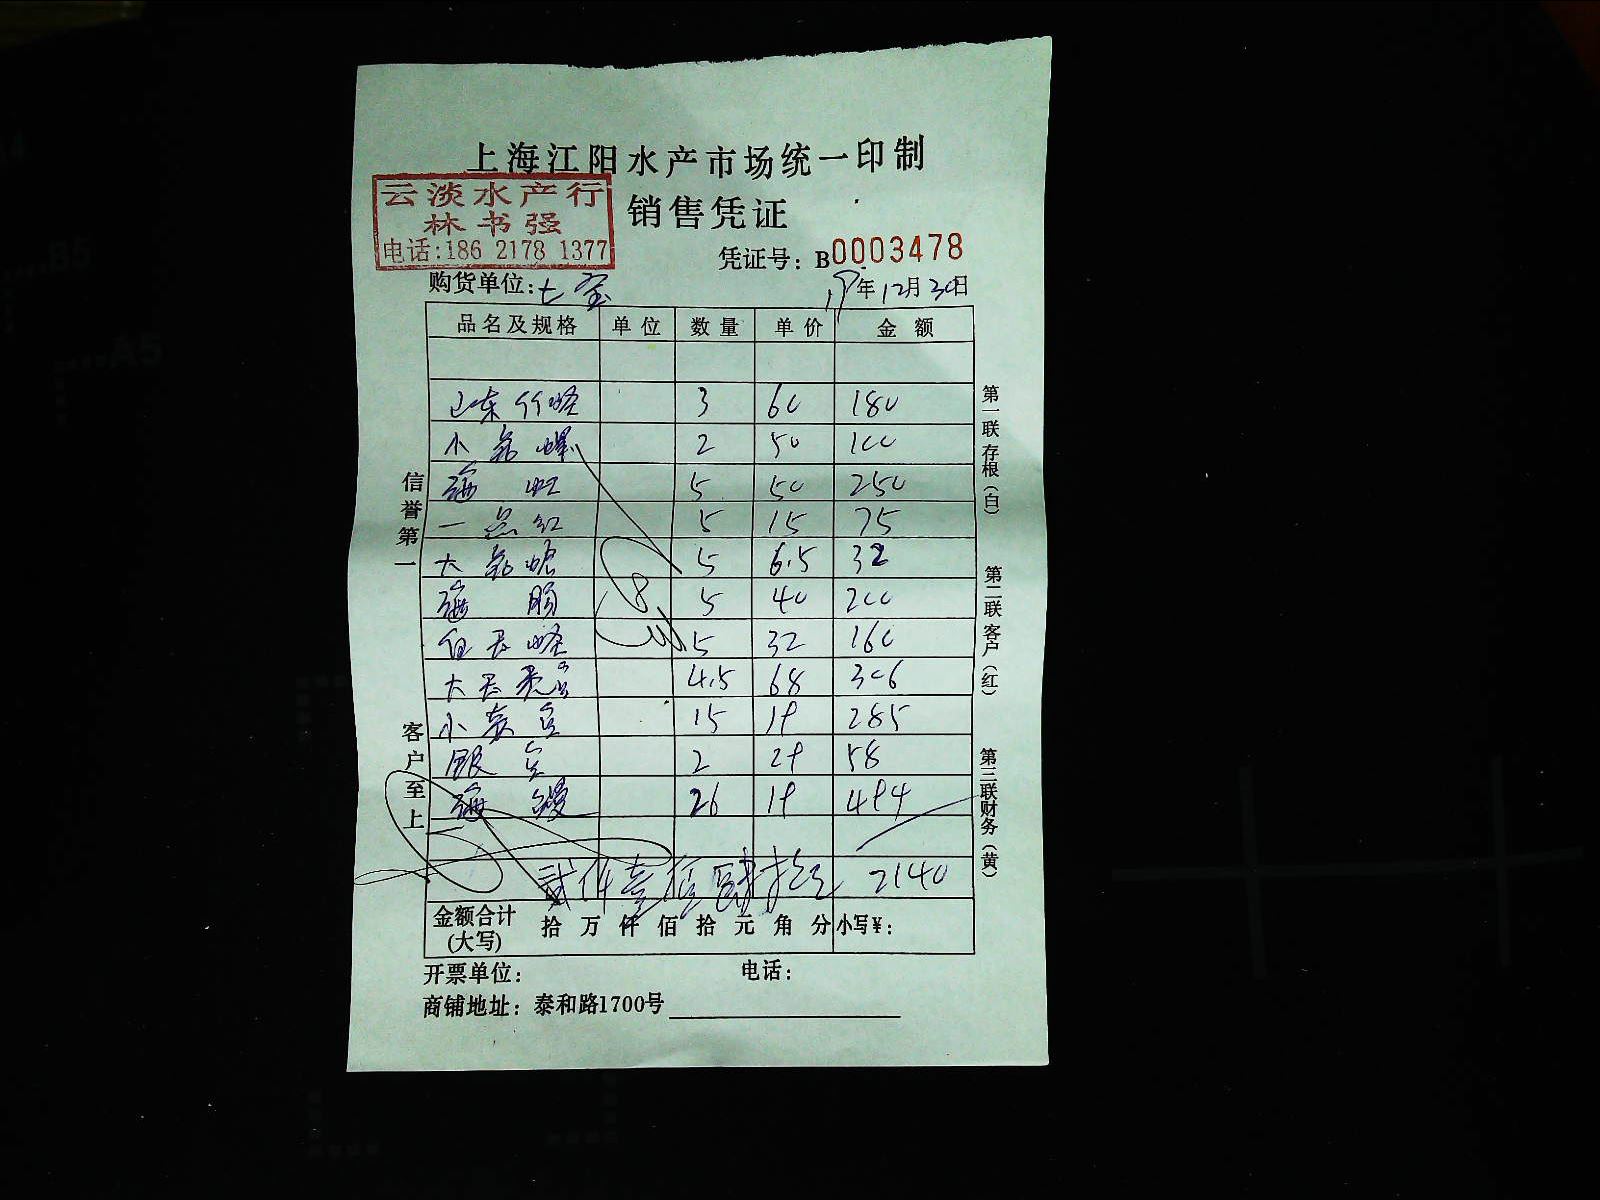 上海江阳水产市场统一印制
云淡水产行
林书强
电话:186 2178 1377
销售凭证
凭证号: B0003478
购货单位: 七宝
19年12月30日
品名及规格 单位 数量 单价 金额
山东竹蛏 3 60 180
小 螺 2 50 100
海虹 5 50 250
一点红 5 15 75
大 5 6.5 32
海肠 5 40 200
白 蛏 5 32 160
大 4.5 68 306
小 15 19 285
银 2 29 58
海鳗 26 19 494
贰仟壹佰肆拾 2140
金额合计
(大写)
拾 万 仟 佰 拾 元 角 分 小写¥:
开票单位: 电话:
商铺地址: 泰和路1700号
信誉第一
客户至上
第一联存根(白)
第二联客户(红)
第三联财务(黄)